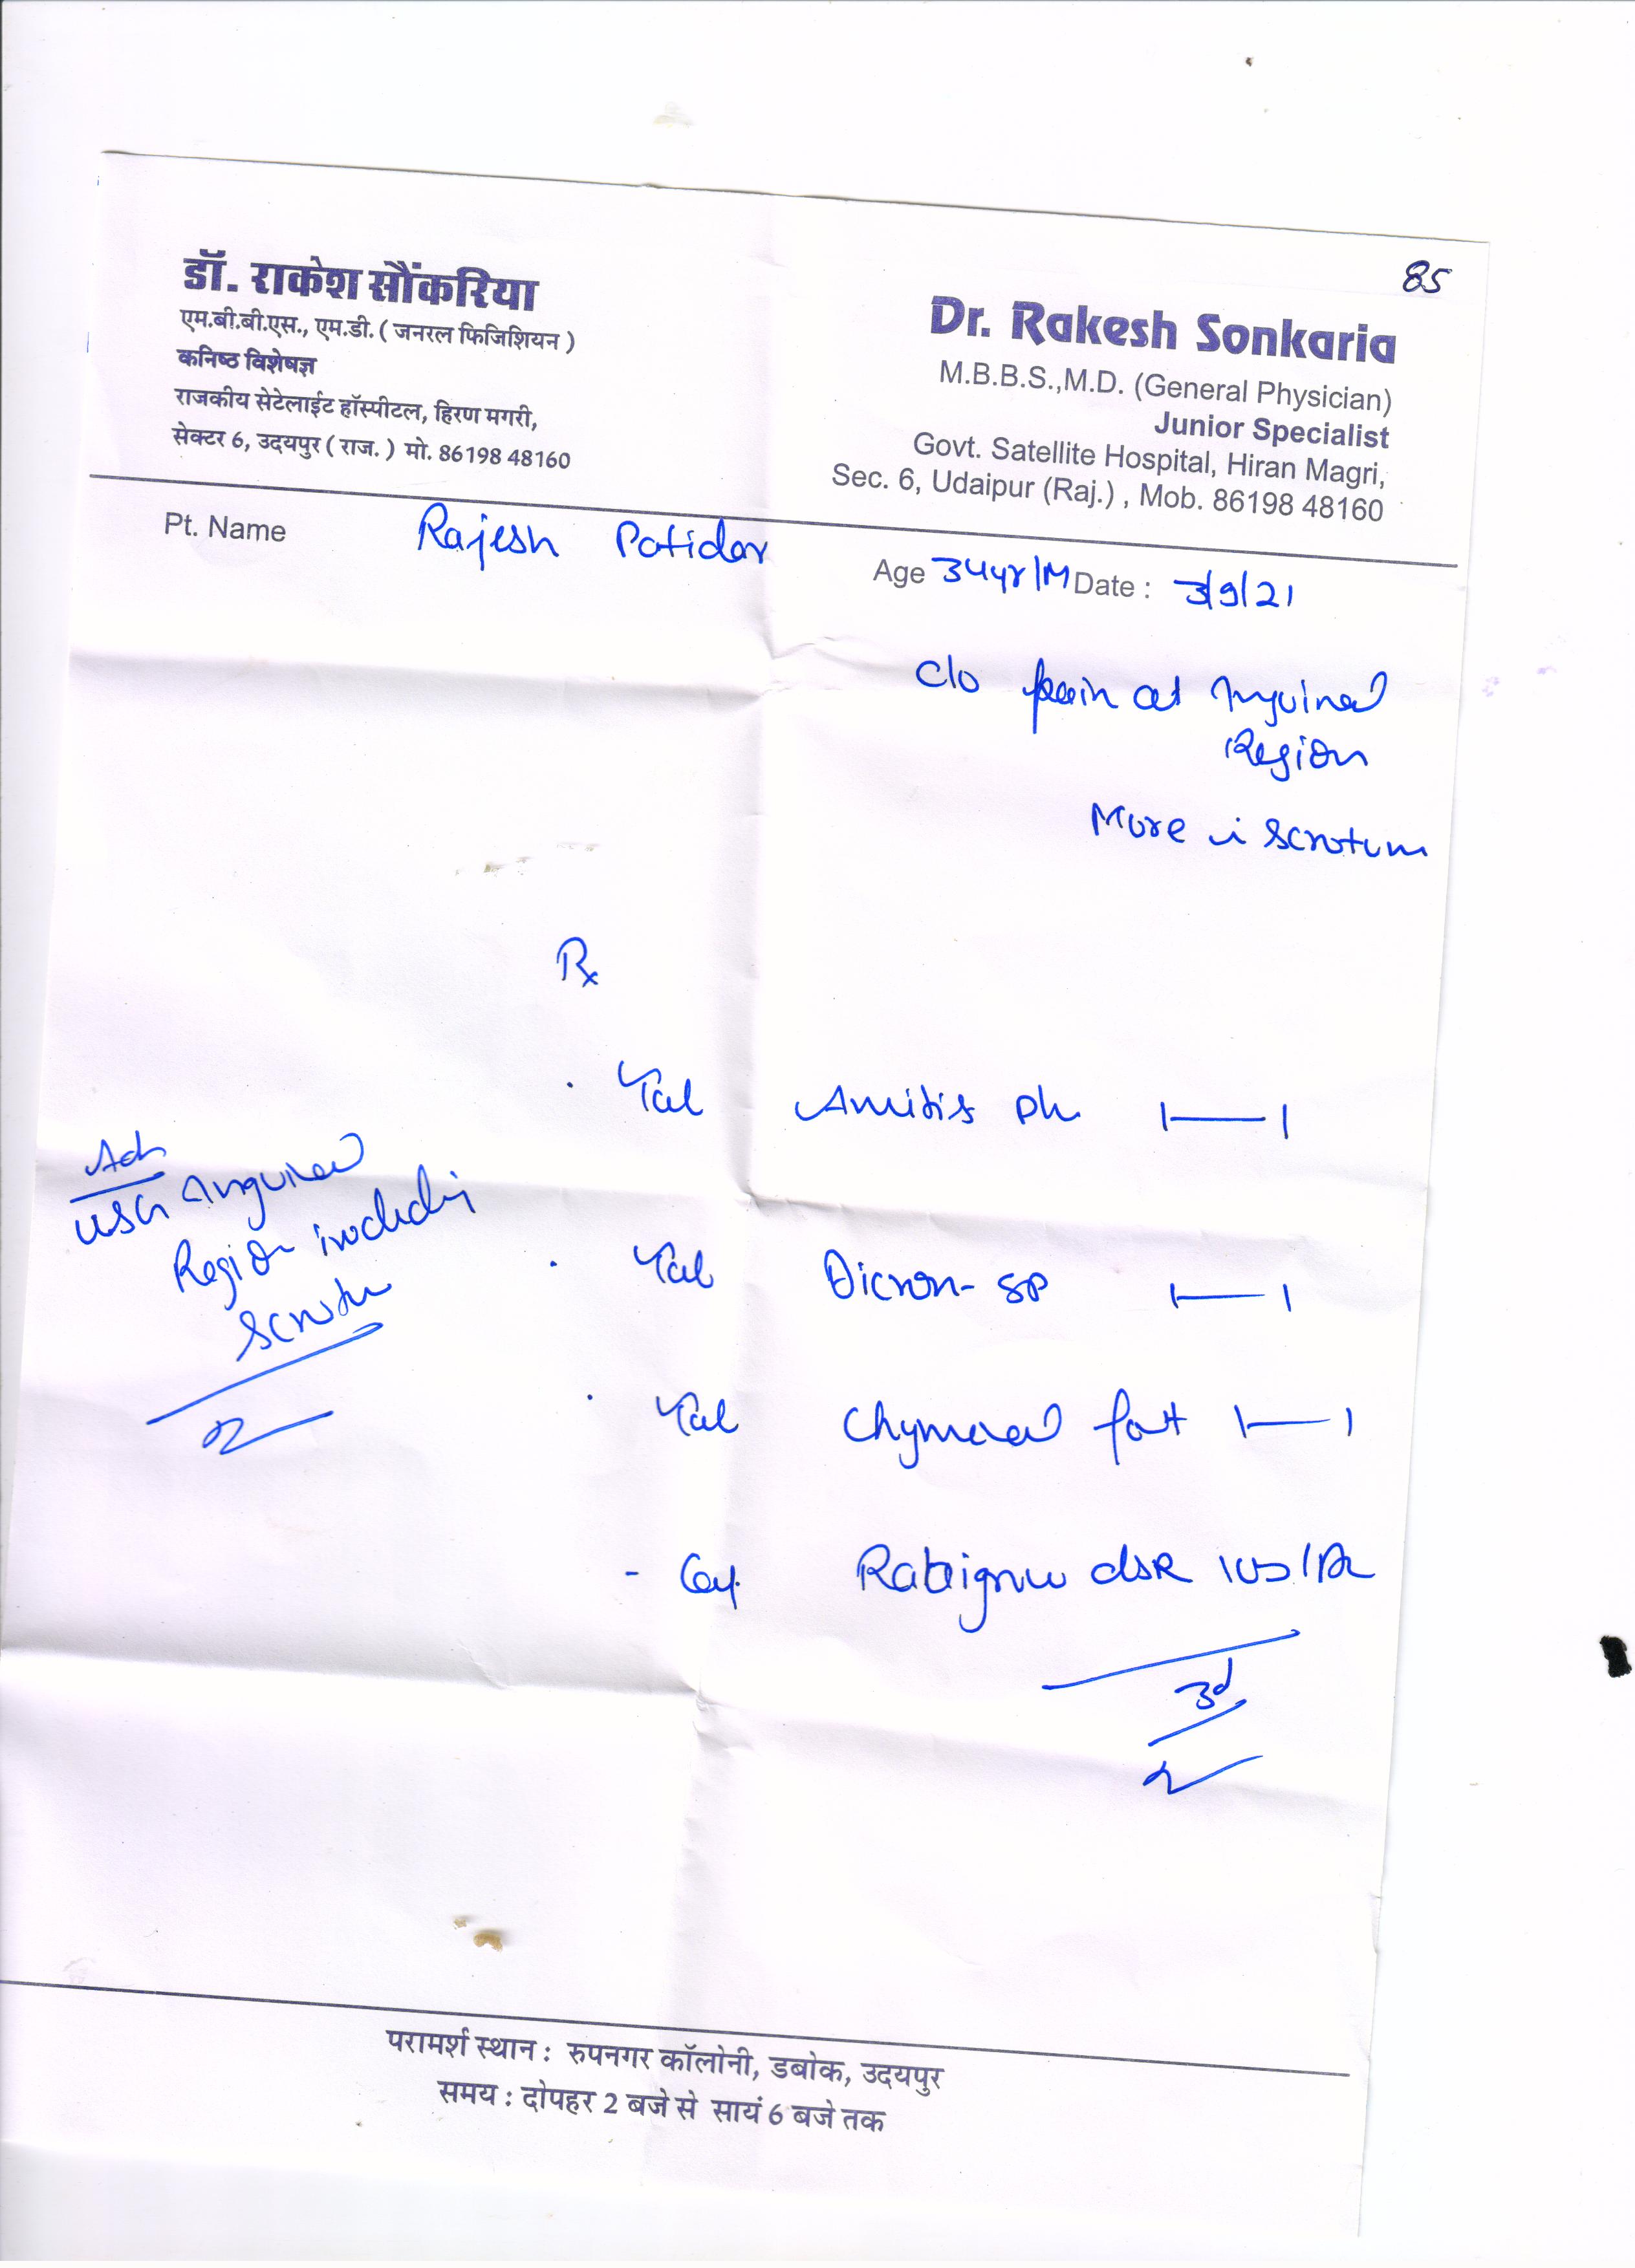 85
डॉ. राकेश सौंकरिया
एम.बी.बी.एस., एम.डी. ( जनरल फिजिशियन )
कनिष्ठ विशेषज्ञ
राजकीय सेटेलाईट हॉस्पीटल, हिरण मगरी,
सेक्टर 6, उदयपुर ( राज. ) मो. 86198 48160
Dr. Rakesh Sonkaria
M.B.B.S.,M.D. (General Physician)
Junior Specialist
Govt. Satellite Hospital, Hiran Magri,
Sec. 6, Udaipur (Raj.) , Mob. 86198 48160
Pt. Name Rajesh Patidar Age 34yr/M Date : 3/9/21
C/o pain at Inguinal
Region
More in Scrotum
Rx
Adv
USG Inguinal
Region including
Scrotum
Tab 1—1
Tab Dicron-SP 1—1
Tab Chymoral fort 1—1
- Cap DSR
3d
परामर्श स्थान : रुपनगर कॉलोनी, डबोक, उदयपुर
समय : दोपहर 2 बजे से सायं 6 बजे तक